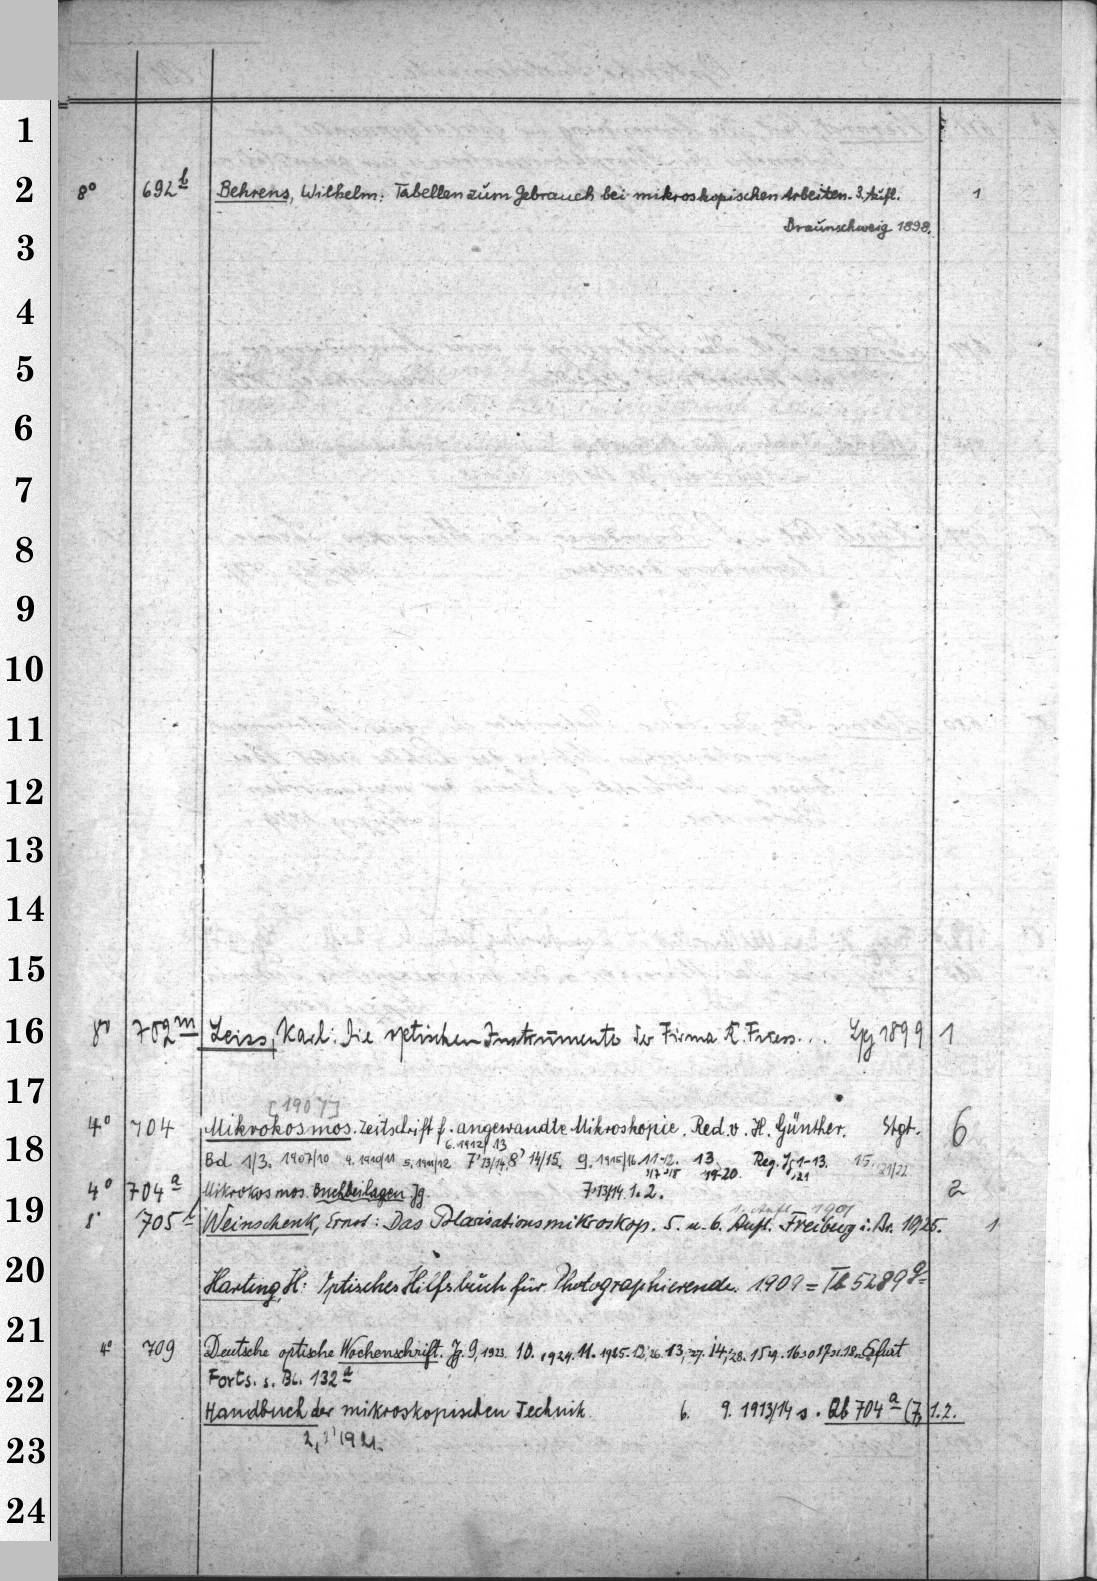 1
2
3
4
5
6
7
8
9
10
11
12
13
14
15
16
17
18
19
20
21
22
23
24
8° 692 b Behrens, Wilhelm: Tabellen zum Gebrauch bei mikroskopischen Arbeiten. 3. Aufl. 1
Braunschweig 1898.
8° 702 m Leiss, Karl: Die optischen Instrumente der Firma R. Fuess... Lpz 1899 1
[1907]
4° 704 Mikrokosmos. Zeitschrift f. angewandte Mikroskopie. Red. v. H. Günther. Stgt. 6
6. 1912/13
Bd 1/3. 1907/10 4. 1910/11 5. 1911/12 7' 13/14. 8' 14/15. 9. 1915/16. 11-12. 13 Reg. Jg 1-13. 15. 21/22
17/18 19-20. 21
4° 704 a Mikrokosmos. Buchbeilagen Jg. 7. 13/14. 1. 2. 2
1. Aufl. 1901
8° 705 Weinschenk, Ernst: Das Polarisationsmikroskop. 5. u. 6. Aufl. Freiburg i. Br. 1925. 1
Harting, H: Optisches Hilfsbuch für Photographierende. 1909 =
4° 709 Deutsche optische Wochenschrift. Jg. 9, 1923. 10. 1924. 11. 1925. 12, 26. 13, 27. 14, 28. 15 29. 16 30 17 31. 18 Erfurt
Forts. s. Bc. 132 a
Handbuch der mikroskopischen Technik 6. 9. 1913/14 s. Qb 704 a (7, 1. 2.
2, 1921.